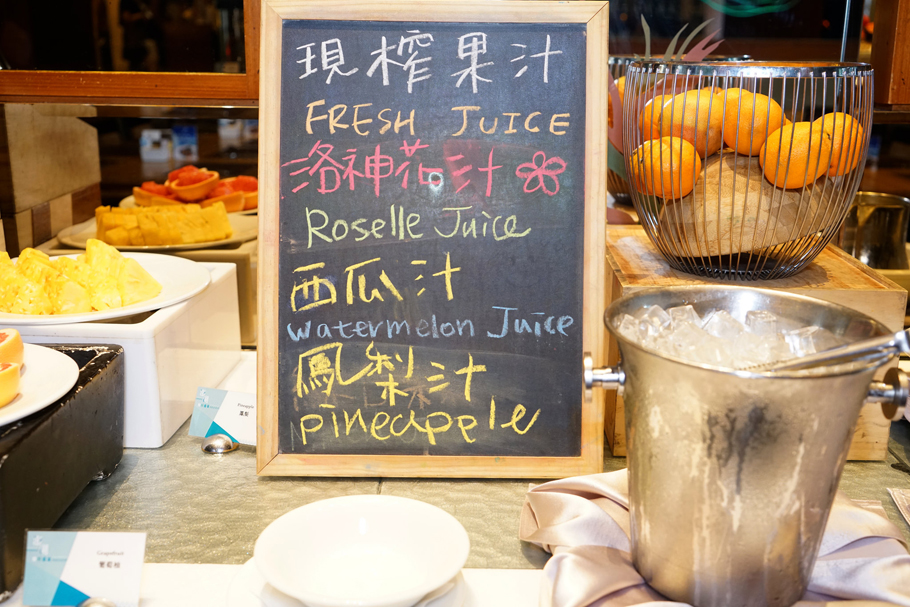 現榨果汁
FRESH JUICE
洛神花汁
Roselle Juice
西瓜汁
watermelon Juice
鳳梨汁
pineapple
Pineapple
鳳梨
Grapefruit
葡萄柚